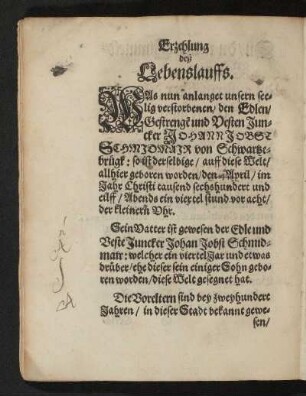 Erzehlung
deß
Lebenslauffs.
WAs nun anlanget unsern see-
lig verstorbenen/ den Edlen/
Gestrengē und Vesten Jun-
cker JOHANN JOBST
SCHMIDMAIR von Schwartze-
brugk: so ist derselbige/ auff diese Welt/
allhier geboren worden/ den April/ im
Jahr Christi tausend sechshundert und
eilff/ Abends ein viertel stund vor acht/
der kleinern Uhr.
Sein Vatter ist gewesen der Edle und
Veste Juncker Johan Jobst Schmid-
mair: welcher ein viertel Jar und etwas
drüber/ ehe dieser sein einiger Sohn gebo-
ren worden/ diese Welt gesegnet hat.
Die Voreltern sind bey zweyhundert
Jahren/ in dieser Stadt bekannt gewe-
sen/